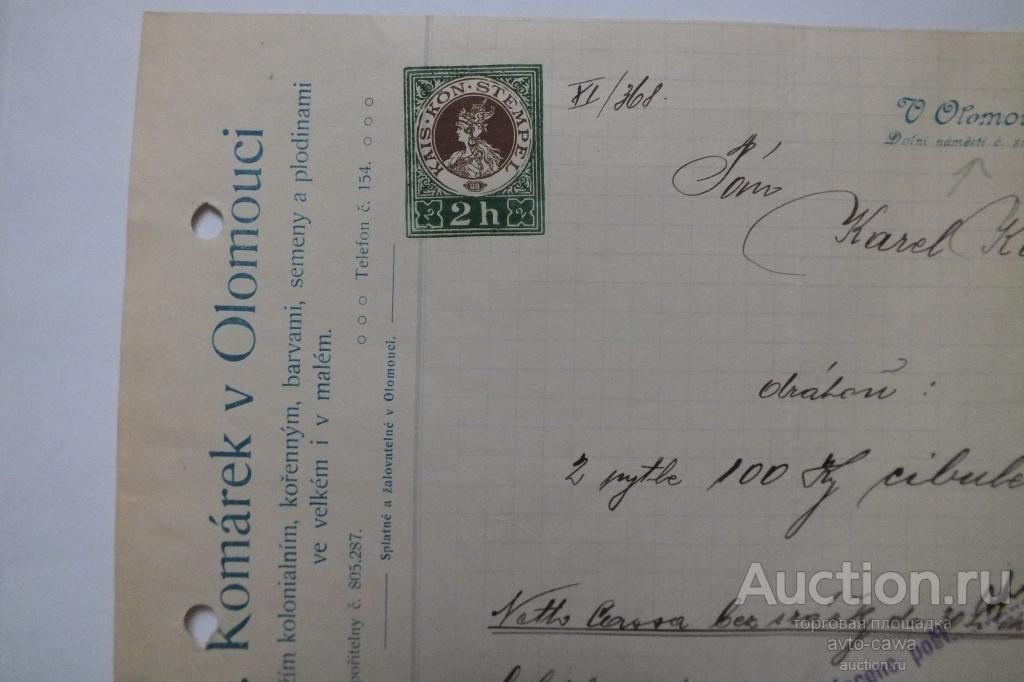 Komárek v Olomouci
ím kolonialním, kořenným, barvami, semeny a plodinami
ve velkém i v malém.
pořitelny č. 805.287.
Telefon č. 154.
Splatné a žalovatelné v Olomouci.
KAIS·KÖN·STEMPEL
2 h
XI/368.
V Olomou
Dolní náměstí č.
Pán
Karel
drahou :
2 pytle 100 Kg cibule
Netto Cassa bez
Auction.ru
торговая площадка
avto-cawa
auction.ru